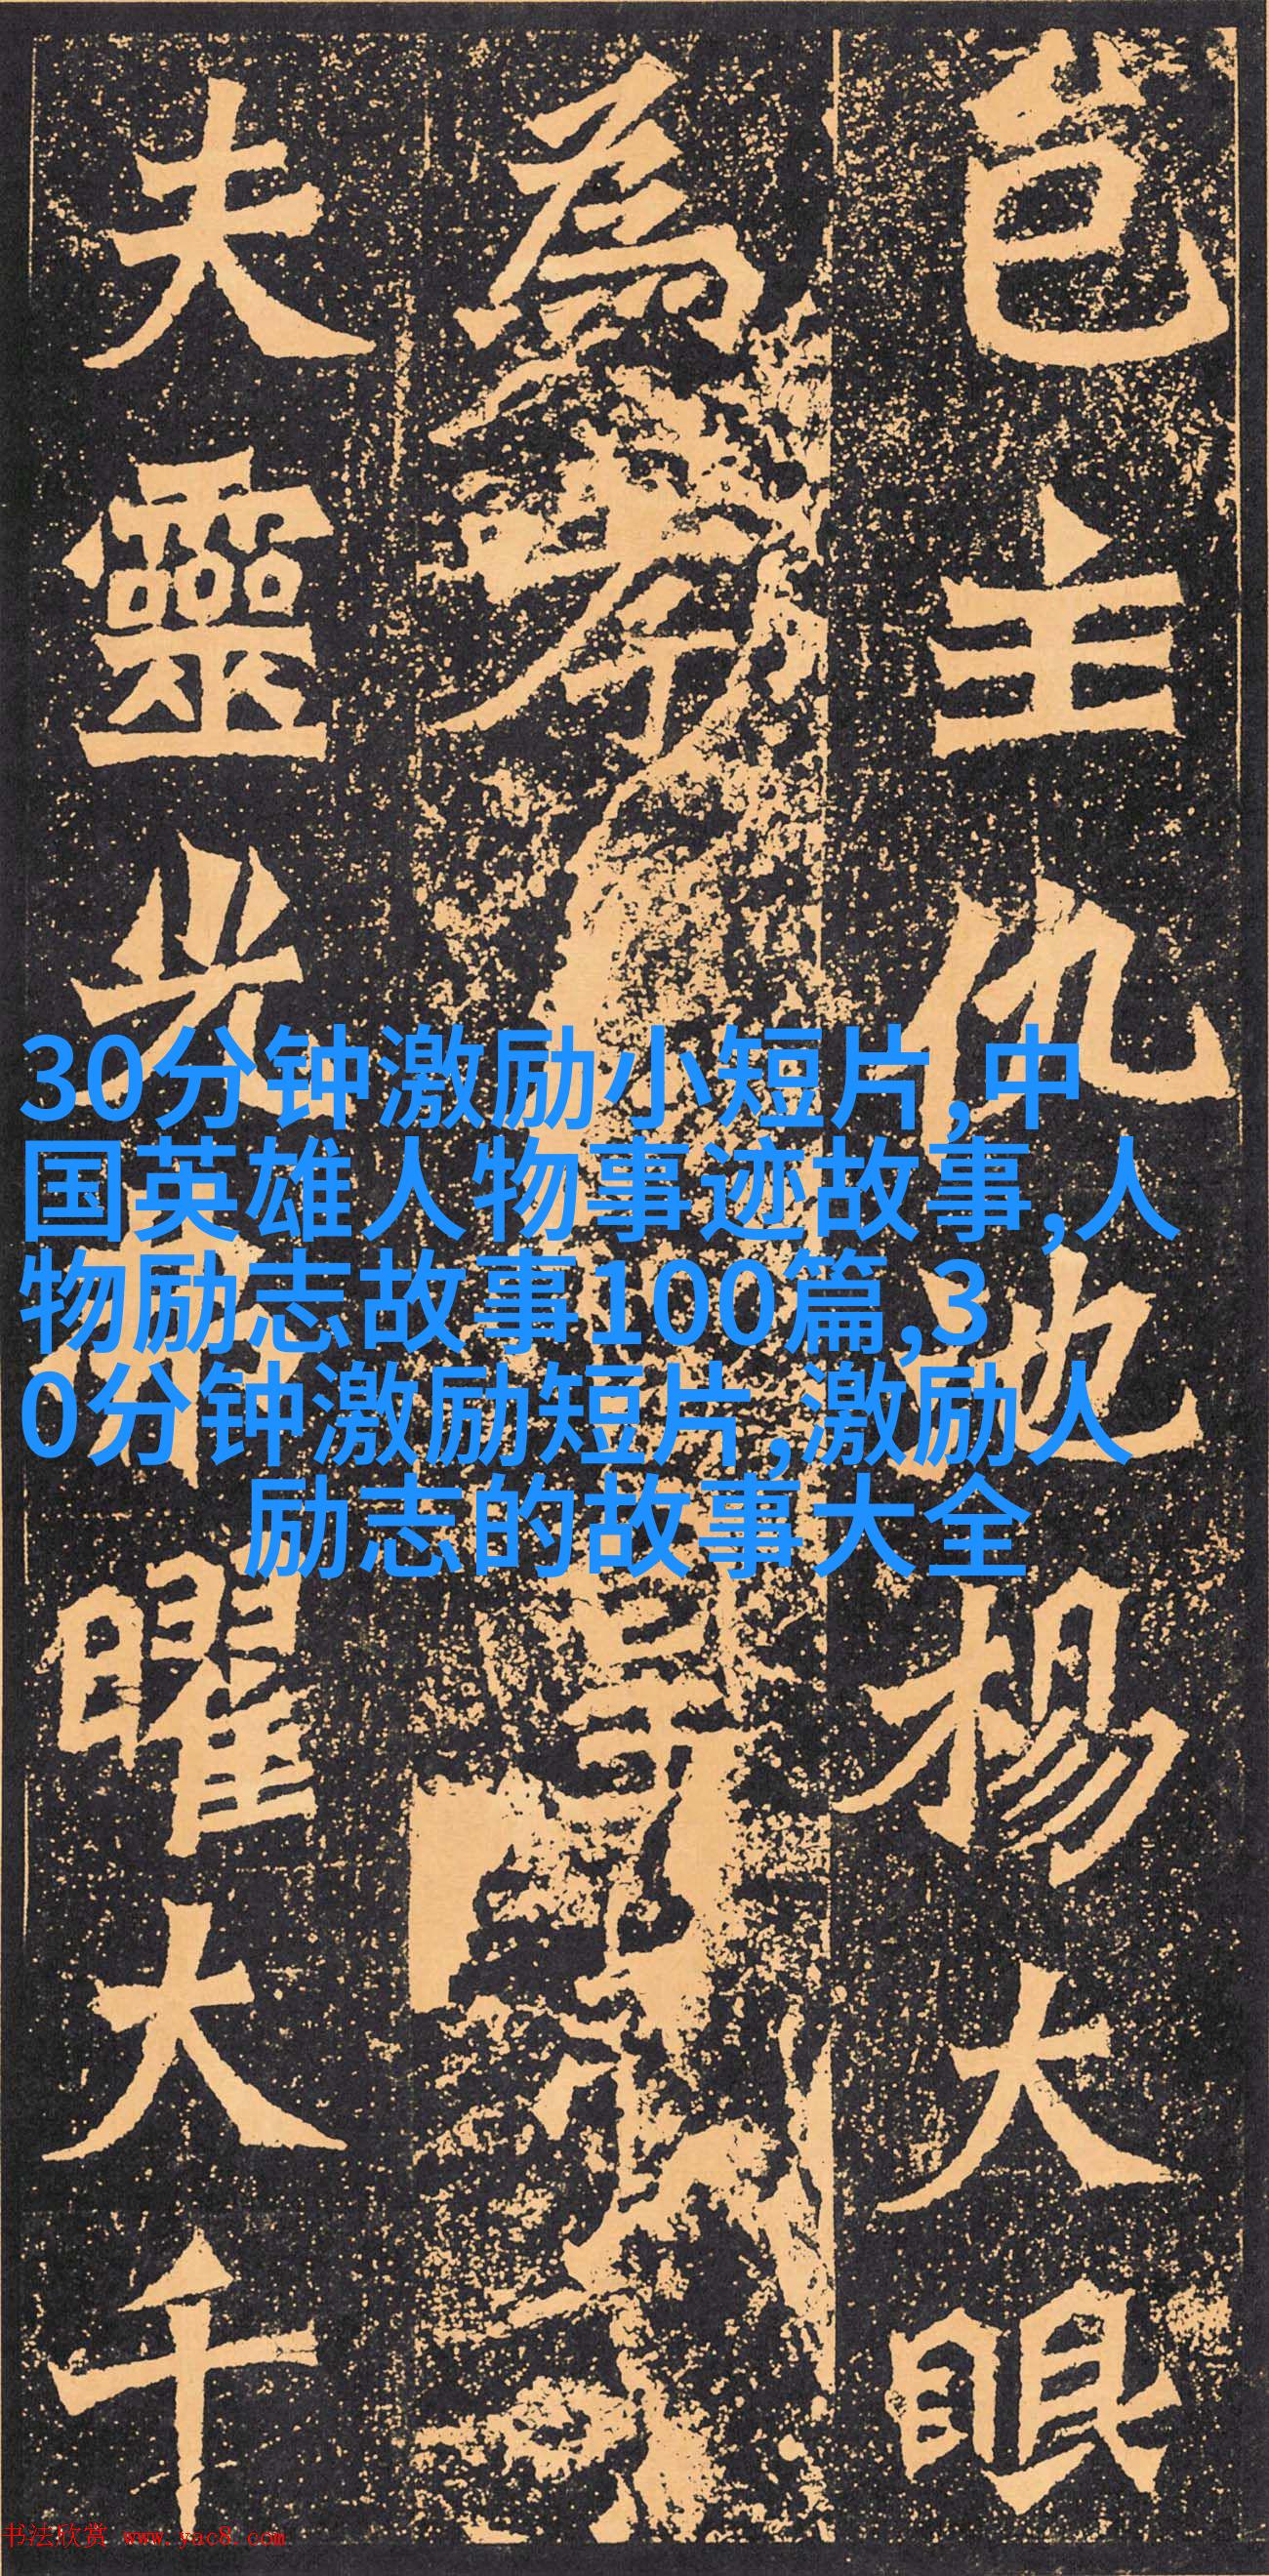 邑主仇池楊大眼
為孝
夫靈光弗曜大千
30分钟激励小短片,中
国英雄人物事迹故事,人
物励志故事100篇,3
0分钟激励短片,激励人
励志的故事大全
书法欣赏 www.yac8.com